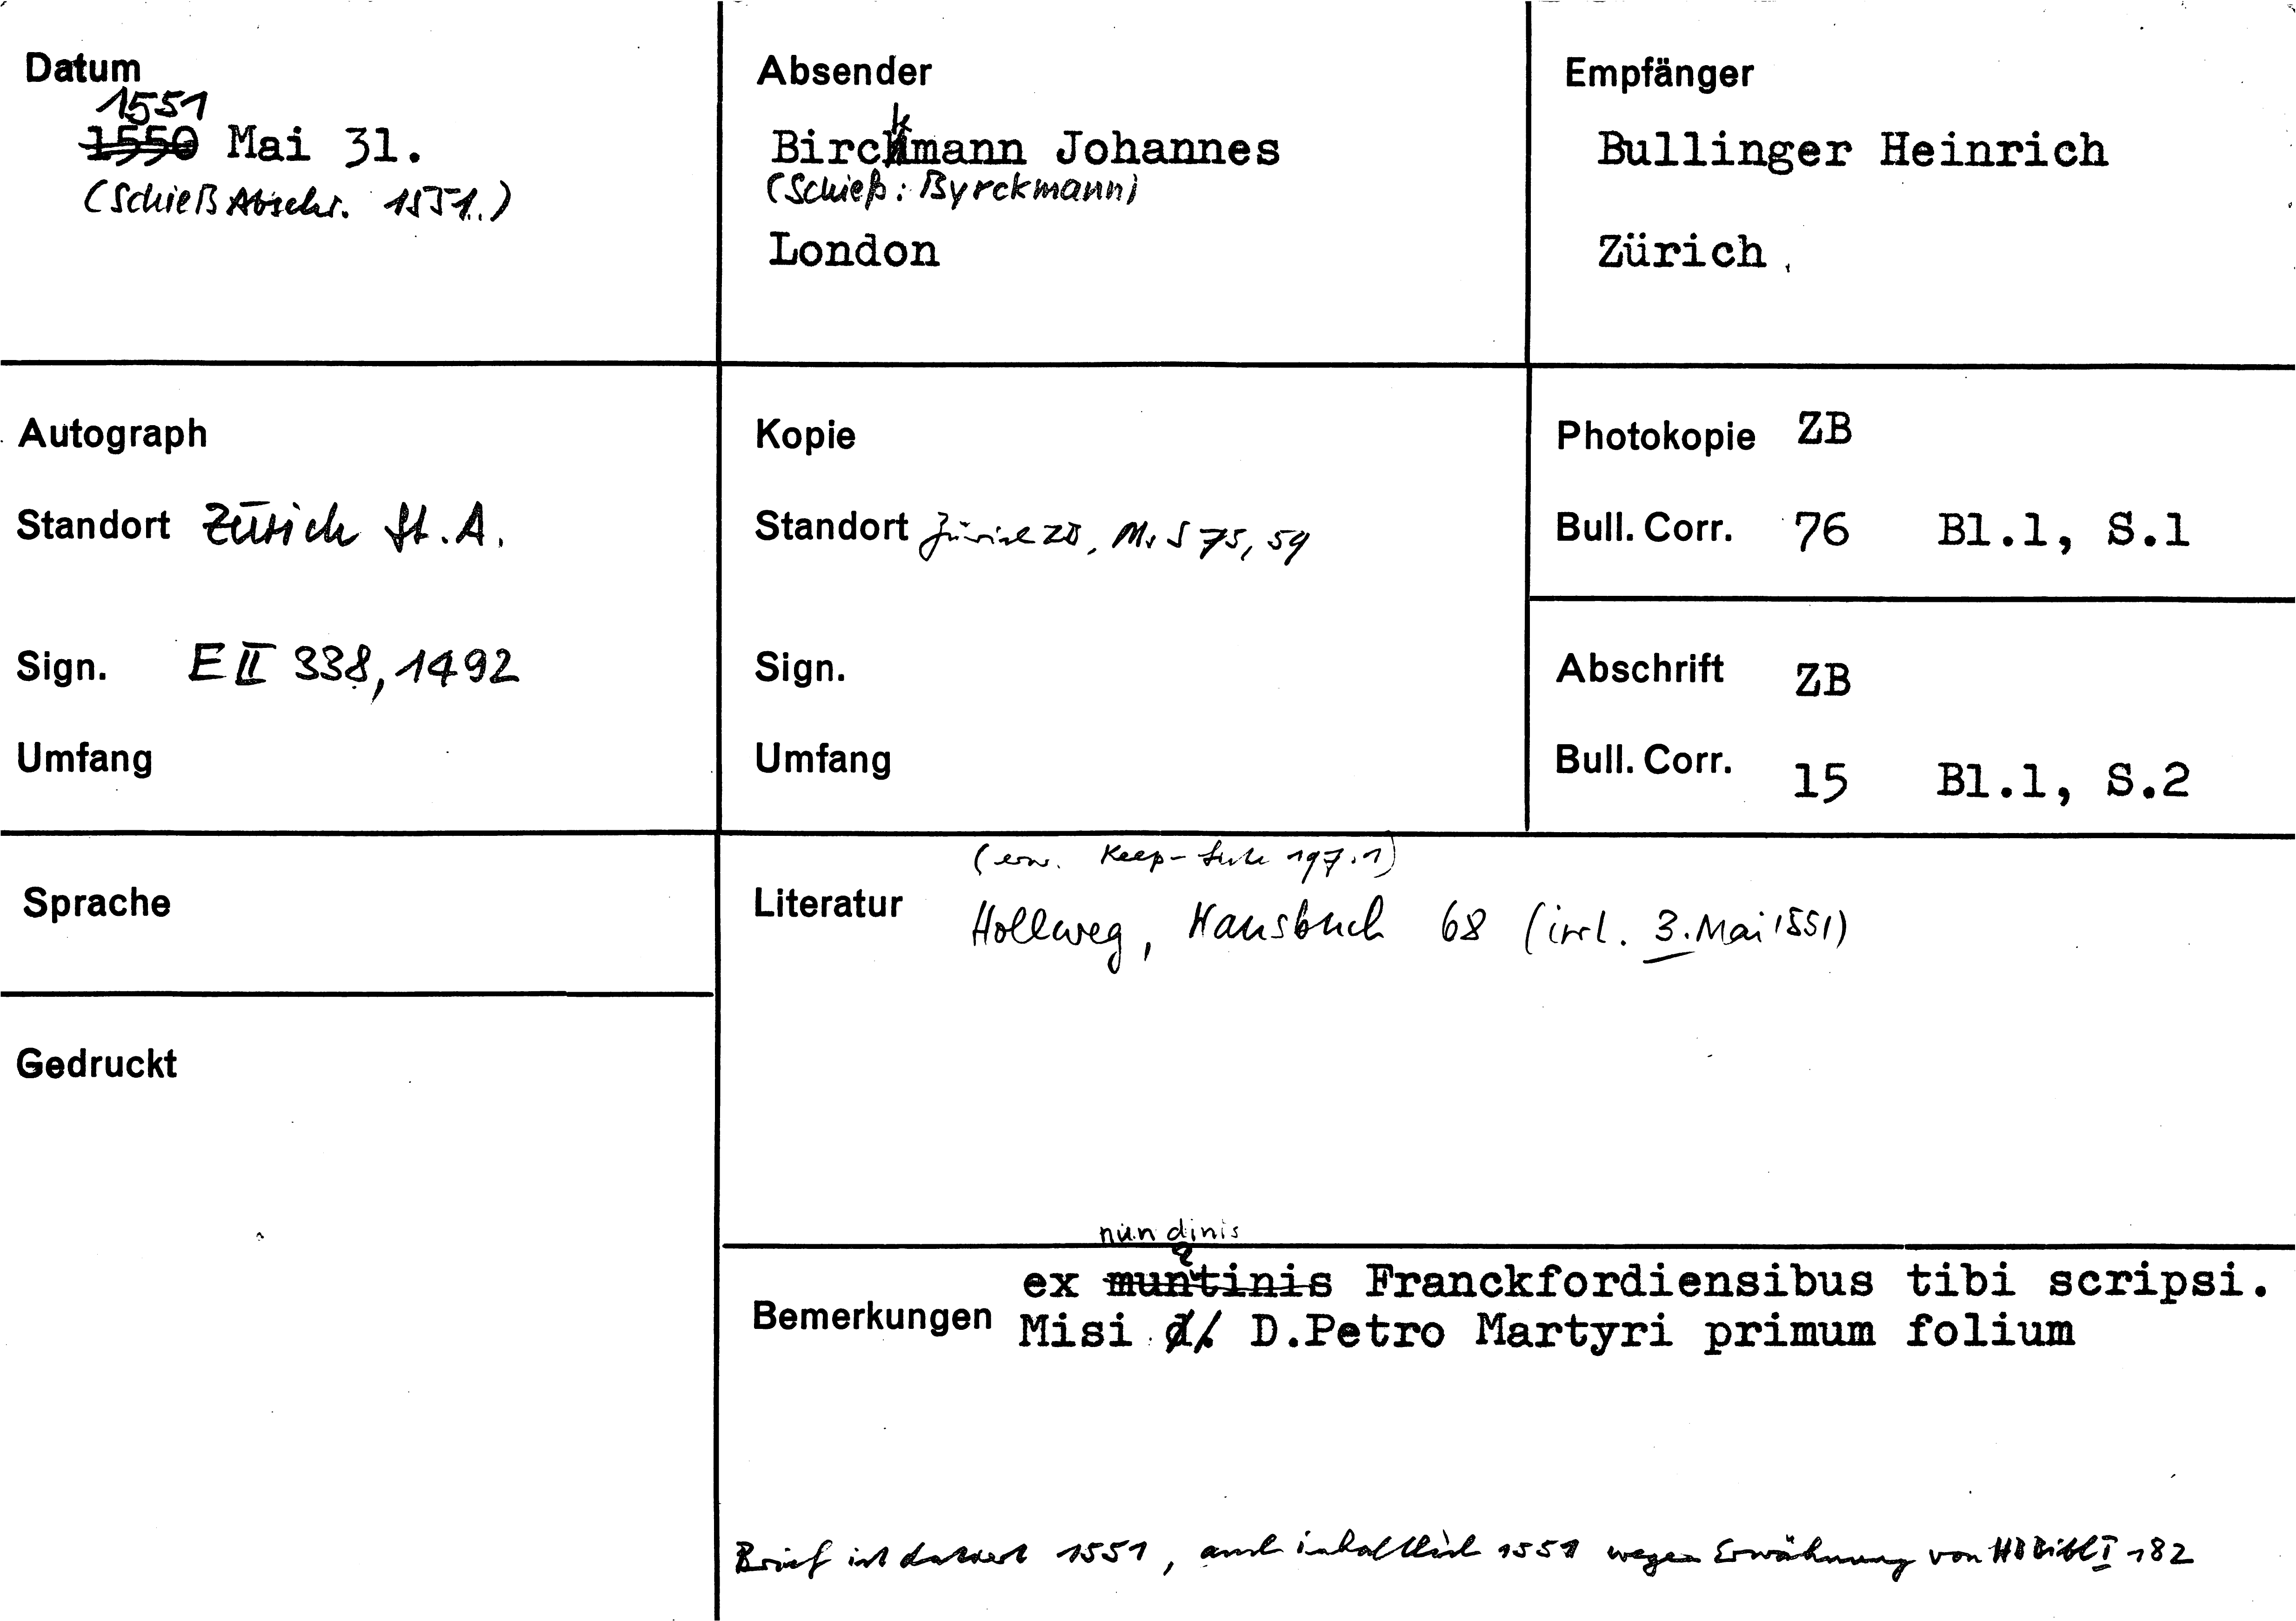 Datum
1551
1550 Mai 31.
(Schieß Abschr. 1551.)
Absender
Birckmann Johannes
(Schieß: Byrckmann)
London
Empfänger
Bullinger Heinrich
Zürich
Autograph
Standort Zürich St.A.
Sign. E II 338, 1492
Umfang
Kopie
Standort Zürich ZB, Ms S 75, 59
Sign.
Umfang
Photokopie ZB
Bull. Corr. 76 Bl.1, S.1
Abschrift ZB
Bull. Corr. 15 Bl.1, S.2
Sprache
Gedruckt
(erw. Keep- 197.1)
Literatur Hollweg, Hausbuch 68 (irrl. 3. Mai 1551)
nundinis
ex muntinis Franckfordiensibus tibi scripsi.
Bemerkungen Misi D.Petro Martyri primum folium
Brief ist datiert 1551, auch inhaltlich 1551 wegen Erwähnung von HBBibl I 182